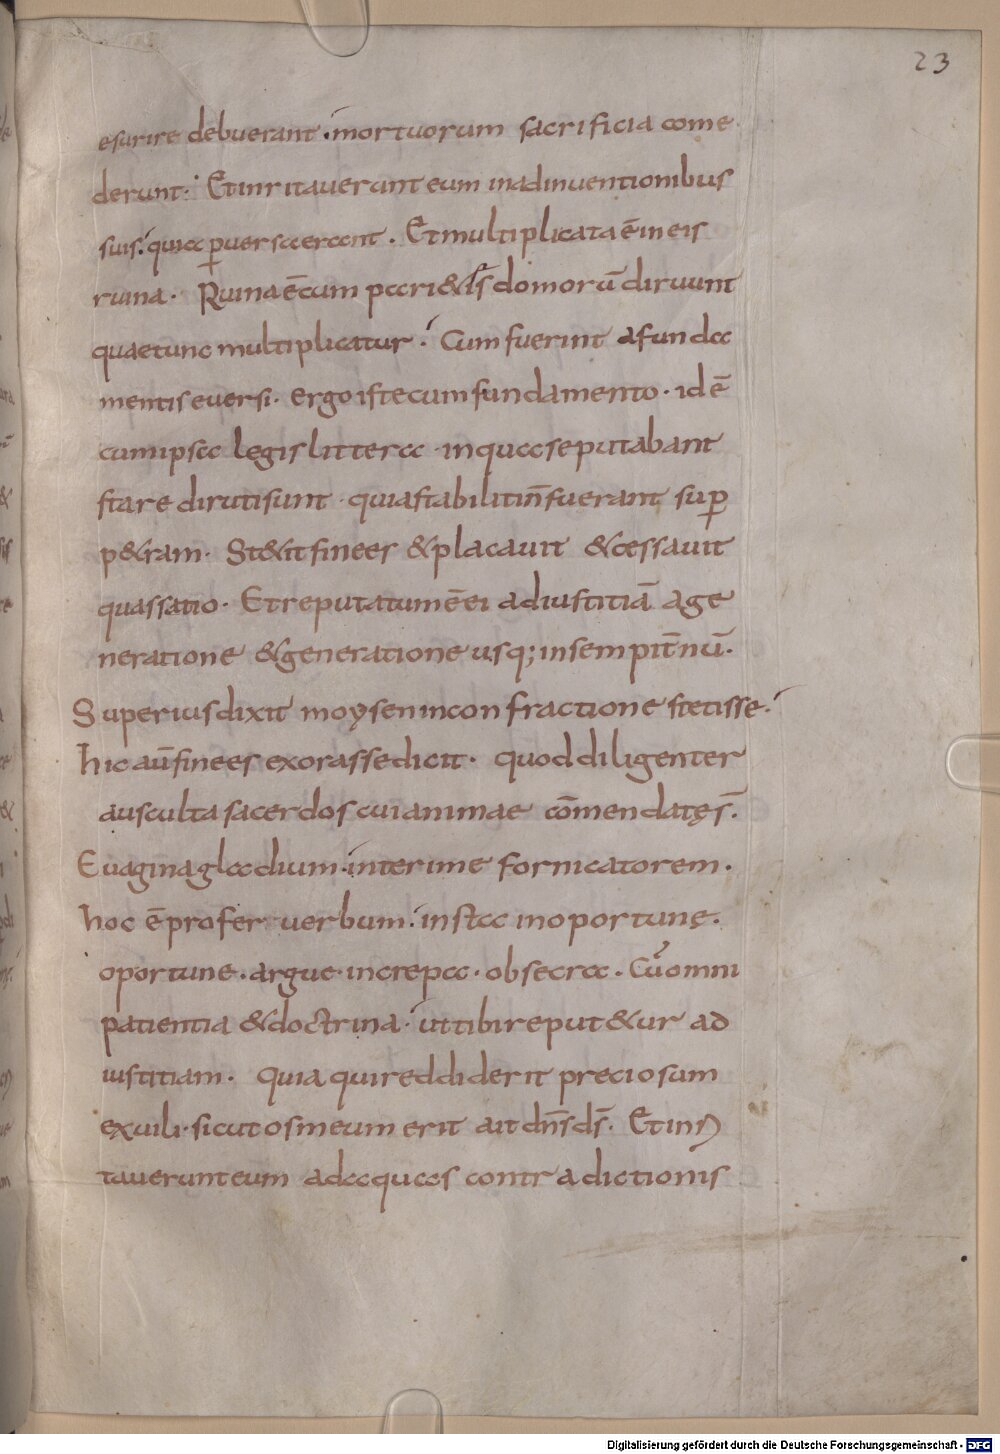 23
esurire debuerant · mortuorum sacrificia come
derunt · Et inritauerunt eum in adinuentionibus
suis · quia ꝑuersa erant . Et multiplicata ē in eis
ruina · Ruina ē cum pcc̄ri & isſ domorū diruunt
quae tunc multiplicatur · Cum fuerint a funda
mentis euersi · ergo iste cum fundamento · id ē
cum ipsa legis littera · in qua se putabant
stare diruti sunt · quia stabiliti n̄ fuerant suꝑ
p&ram · St&it finees & placauit & cessauit
quassatio · Et reputatum ē ei ad iustitiā a ge
neratione & generatione usq; in sempit̄nū ·
Superius dixit moysen in confractione stetisse ·
hic aū finees exorasse dicit · quod diligenter
ausculta sacerdos cui animae cōmendatę s̄ .
Euagina gladium · interime fornicatorem .
hoc ē profer uerbum · insta inoportunę .
oportune . argue · increpa · obsecra . Cū omni
patientia & doctrina · ut tibi reput&ur ad
iustitiam . Quia qui reddiderit preciosum
ex uili · sicut os meum erit ait dn̄s ds̄ . Et inri
tauerunt eum ad aquas contradictionis
Digitalisierung gefördert durch die Deutsche Forschungsgemeinschaft - DFG